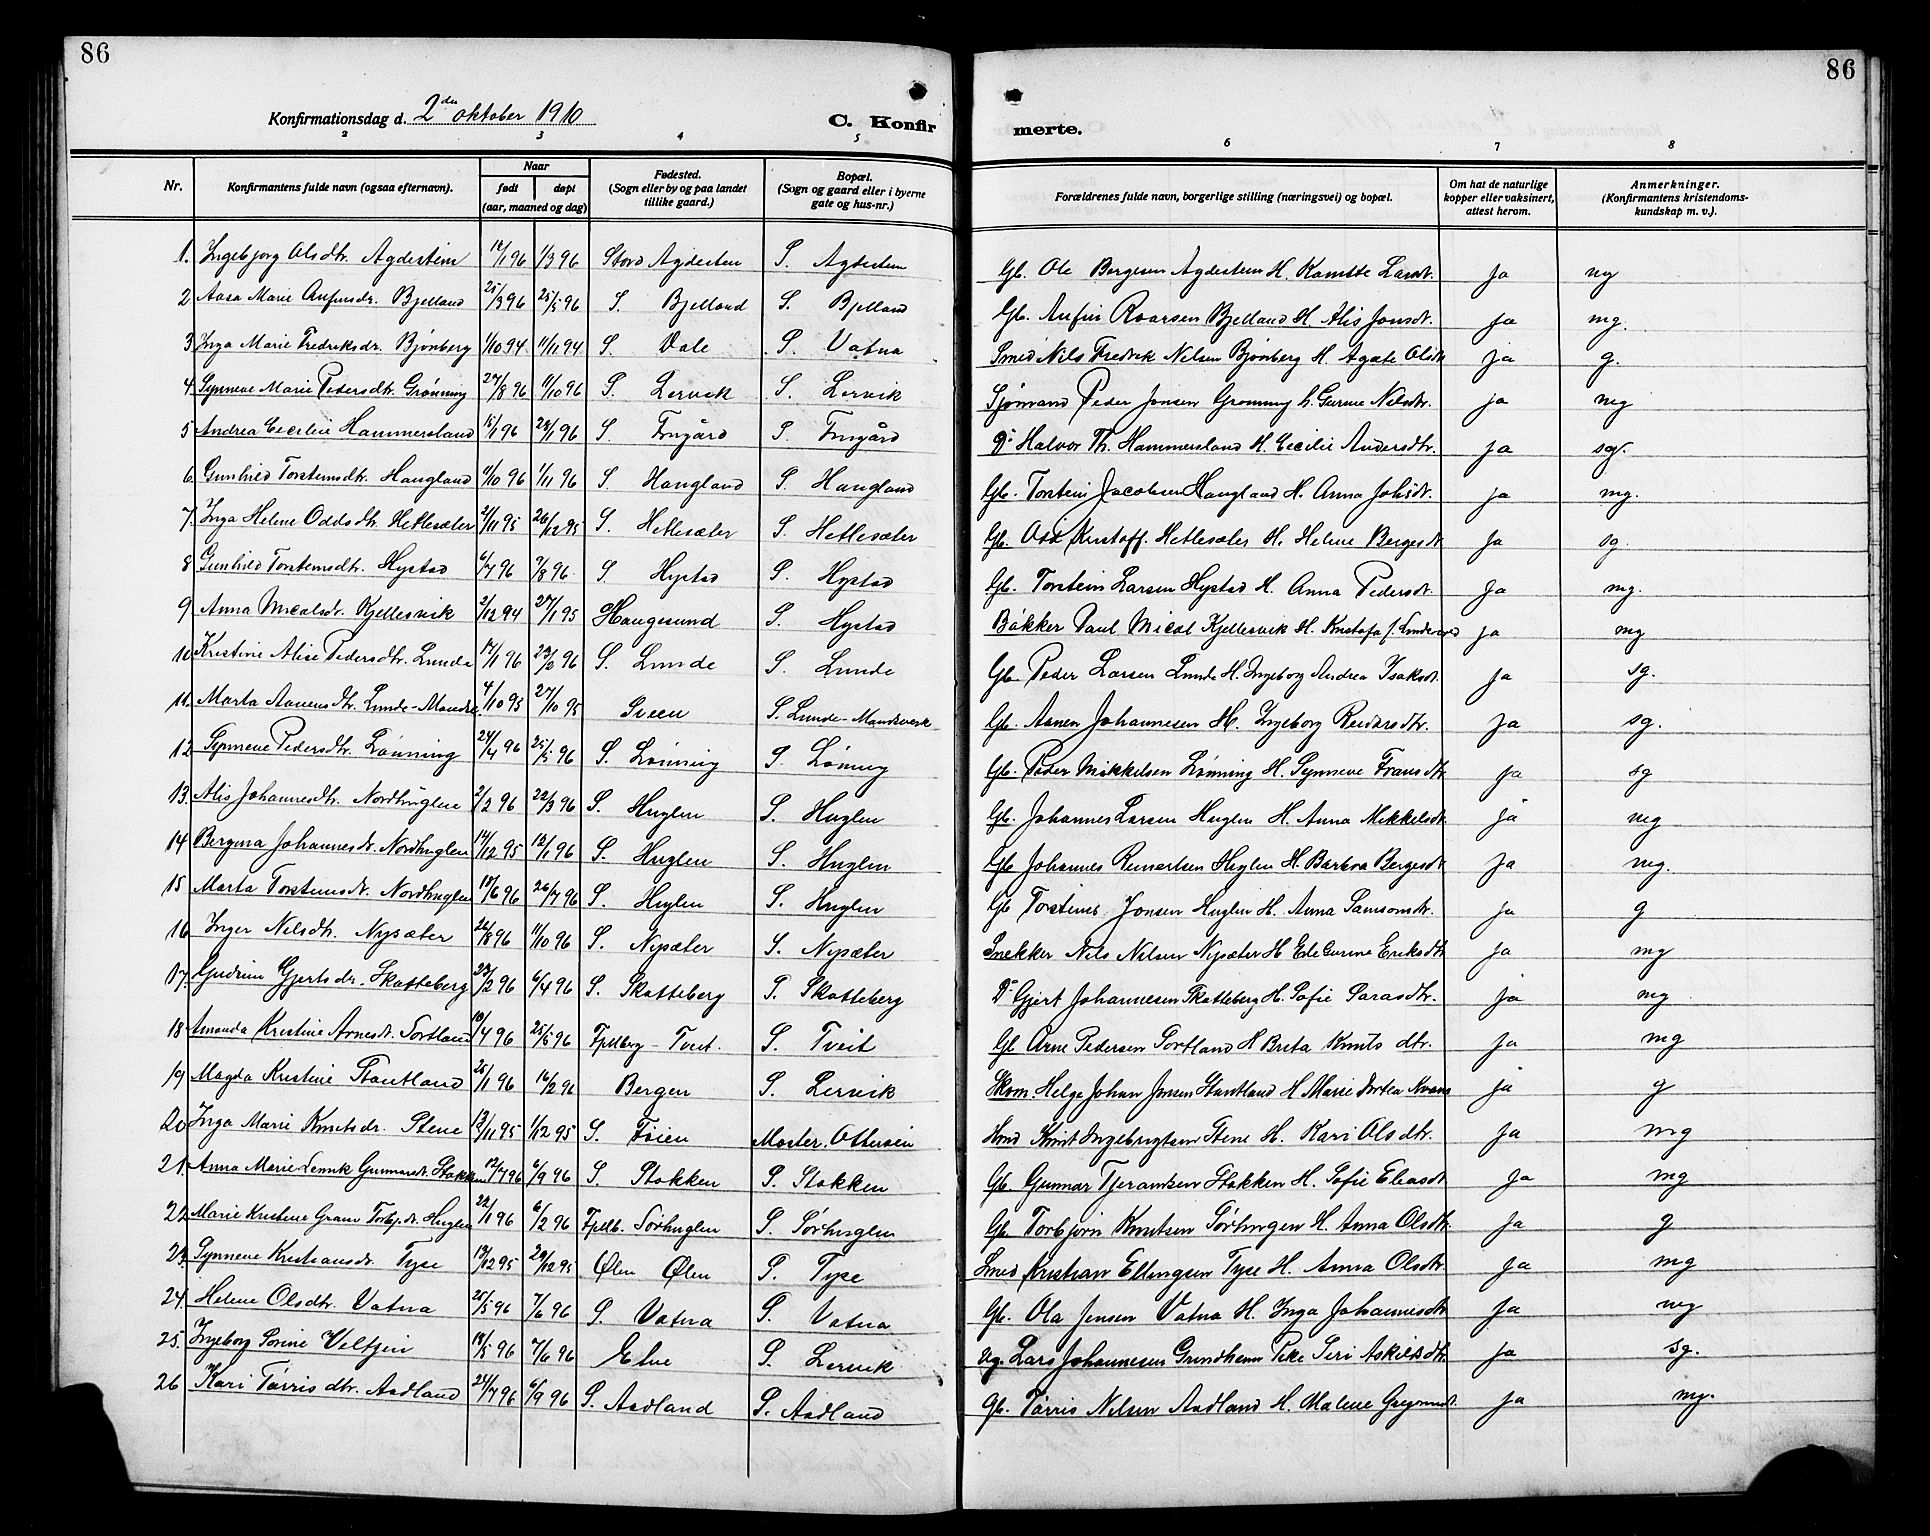 86
86
Konfirmationsdag d. 2den oktober 1910
C. Konfir
merte.
2 3 4 5 6 7 8
Nr.
Konfirmantens fulde navn (ogsaa efternavn).
Naar
født
døpt
(aar, maaned og dag)
Fødested.
(Sogn eller by og paa landet
tillike gaard.)
Bopæl.
(Sogn og gaard eller i byerne
gate og hus-nr.)
Forældrenes fulde navn, borgerlige stilling (næringsvei) og bopæl.
Om hat de naturlige
kopper eller vaksinert,
attest herom.
Anmerkninger.
(Konfirmantens kristendoms-
kundskap m. v.).
1. Ingebjørg Olsdtr. Agdestein 1/3 96 Stord Agdesten S. Agdesten Gb. Ole Bergesen Agdestein H. Larsdt. ja mg
2 Aasa Marie Anfinsdr. Bjelland 25/3 96 25/5 96 S. Bjelland S. Bjelland Gb. Anfin Roarsen Bjelland H. Alis Jonsdt. ja mg.
3 Inga Marie Fredriksdr. Bjønberg 1/10 94 11/11 94 S. Vale S. Vatna Smed Nils Fredrik Nilsen Bjønberg H. Agate Olsdtr ja g.
4 Synneve Marie Pedersdtr. Grønning 27/8 96 11/10 96 S. Lervik S. Lervik Sjømand Peder Jonsen Grønning h. Gurine Nilsdtr. ja mg
5 Andrea Cecilie Hammersland 15/1 96 S. Frugård S. Frugård D: Halvor Th. Hammersland H. Cecilie Andersdtr. ja sg.
6 Gunhild Torsteinsdtr. Haugland 11/10 96 1/11 96 S. Haugland S. Haugland Gb. Torstein Jacobsen Haugland H. Anna Johsdt. ja mg.
7. Inga Helene Oddsdtr. Hetlesæter 21/11 95 26/12 95 S. Hetlesæter S. Hetlesæter Gb. Odd Kristoff. Hetlesæter H. Helene Bergesdt ja sg.
8 Gunhild Torsteinsdtr. Hystad 6/7 96 9/8 96. S Hystad S. Hystad Gb. Torstein Larsen Hystad H. Anna Pedersdt. ja mg.
9 Anna Micalsdr. Kjellesvik 2/12 94 27/1 95 Haugesund S. Hystad Båkker Paul Mical Kjellesvik H. Kristofa f. ja mg
10 Kristine Alise Pedersdtr. Lunde 17/1 96 23/2 96 S. Lunde S. Lunde Gb. Peder Larsen Lunde H. Ingeborg Andrea Isaksdt. ja sg.
11. Marta Aanensdtr. Lunde-Mandsv. 4/10 95 27/10 95 Sveen S. Lunde-Mandsverk Gb. Aanen Johannesen H. Ingeborg Reidarsdtr. ja sg.
12 Synneve Pedersdtr. Lønning 24/4 96 25/5 96 S. Lønning S. Lønning Gb. Peder Mikkelsen Lønning H. Synneve Fransdtr. ja sg
13. Alis Johannesdtr. Nordhuglen 2/2 96 22/3 96 S. Huglen S. Huglen Gb. Johannes Larsen Huglen H. Anna Mikkelsdt. ja mg
14 Bergina Johannesdt. Nordhuglen 14/12 95 12/1 96 S. Huglen S. Huglen Gb. Johannes Reinertsen Huglen H. Barbra Bergesdt ja mg.
15 Marta Torsteinsdt. Nordhuglen 26/7 96 S. Huglen S. Huglen Gb Torstein Jonsen Huglen H. Anna Samsonsdtr. ja g
16 Inger Nilsdtr. Nysæter 26/8 96 11/10 96 S. Nysæter S. Nysæter Snekker Nils Nilsen Nysæter H Ele Gurine Eriksdtr ja mg
17. Gudrun Gjertsdr. Skatteberg 23/2 96 6/4 96 S. Skatteberg S. Skatteberg D: Gjert Johannesen Skatteberg H. Sofie Larsdtr. ja mg
18 Amanda Kristine Arnesdt. Sortland 10/4 96 25/5 96 Fjelberg - Tveit. S. Tveit Gb Arne Pedersen Sortland H Brita Knuts dtr. ja mg
19 Magda Kristine Stautland 25/1 96 16/2 96 Bergen S. Lervik Skom. Helge Johan Jonsen Stautland H Marie Dortea ja g
20 Inga Marie Knutsdr. Stene 13/11 95 1/12 95 S. Føien Moster. Ottersøen Hmd Knut Ingebrigtsen Stene H. Kari Olsdtr. ja mg
21. Anna Marie Gunnarsdt. Stokken 12/7 96 6/9 96 S. Stokken S. Stokken Gb. Gunnar Tjeransen Stokken H. Sofie Eliasdt ja mg
22 Marie Kristine Gram Torbj.dt. Huglen 22/1 96 6/2 96 Fjelb. Sørhuglen S. Sørhuglen Gb. Torbjørn Knutsen Sørhuglen H. Anna Olsdtr. ja g
23. Synneve Kristiansdr. Tyse 13/12 95 29/12 95 Ølen Ølen S. Tyse Smed Kristian Ellingsen Tyse H. Anna Olsdtr. ja mg
24. Helene Olsdtr. Vatna 25/5 96 7/6 96 S. Vatna S. Vatna Gb. Ola Jensen Vatna H. Inga Johannesdtr ja mg
25. Ingeborg Sorine Veltzin 14/5 96 7/6 96 Etne S. Lervik Ug. Lars Johannesen Grindheim Pike Siri Askildsdtr. ja sg.
26 Kari Tørris dtr. Aadland 25/7 96 6/9 96 S. Aadland S. Aadland Gb. Tørris Nilsen Aadland H. Malene ja mg.